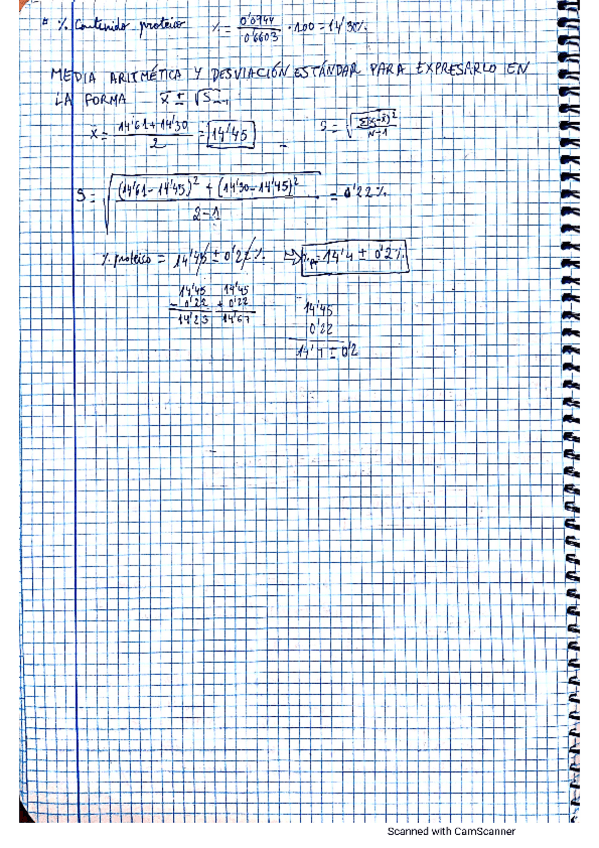 * % Contenido proteico % = 0'0944 / 0'6603 · 100 = 14'30%
MEDIA ARITMÉTICA Y DESVIACIÓN ESTÁNDAR PARA EXPRESARLO EN
LA FORMA x̄ ±
x̄ = 14'61+14'30 / 2 = 14'45 S = √ Σ(x-x̄)² / N-1
S = √ (14'61-14'45)² + (14'30-14'45)² / 2-1 = 0'22%
% proteico = 14'45 ± 0'22% => % pr = 14'4 ± 0'2%
14'45 14'45 14'45
- 0'22 + 0'22 0'22
14'23 14'67 14'4 ± 0'2
Scanned with CamScanner